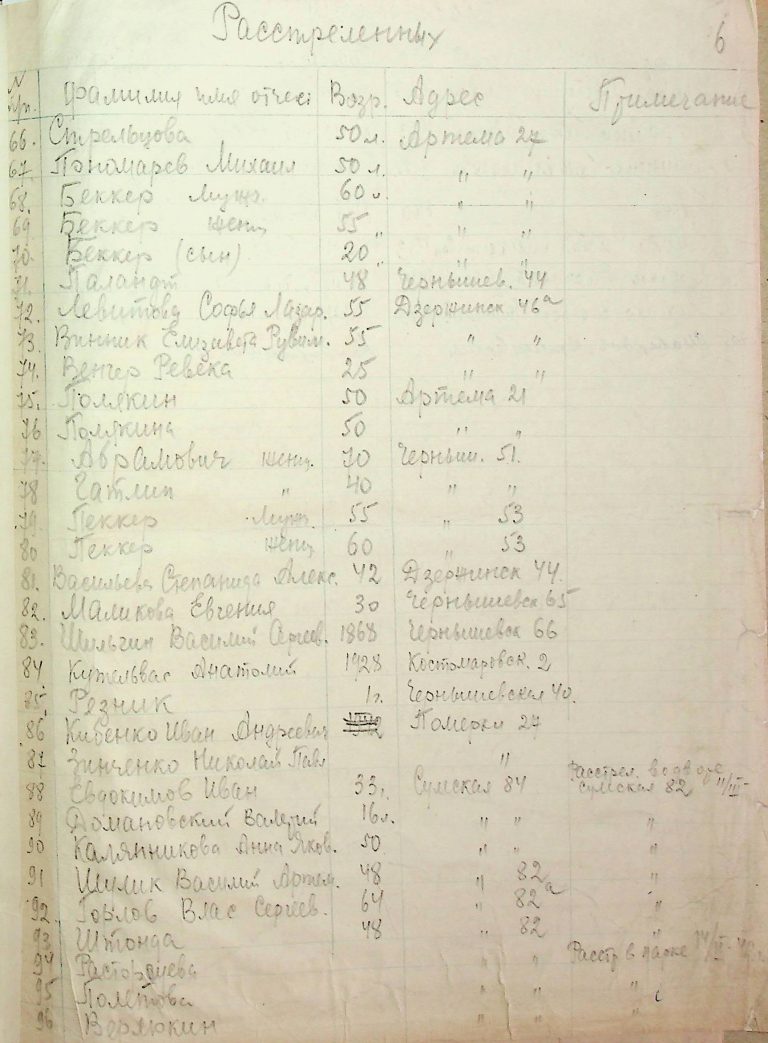 Расстрелянных 6
N п/п. Фамилия имя отчест Возр. Адрес Примечание
66. Стрельцова 50 л. Артема 27
67. Пономарев Михаил 50 л. " "
68. Беккер Мужч. 60 л. " "
69 Беккер женщ 55 " " "
70. Беккер (сын) 20 " " "
71. Палант 48 Чернышев. 44
72. Левитова Софья Лазар. 55 Дзержинск 46а
73. Винник Елизавета Рувим. 55 " "
74. Венчер Ревека 25 " "
75. Полякин 50 Артема 21
76 Полякина 50 " "
77. Абрамович женщ. 70 Черныш. 51.
78 Гатлип " 40 " "
79. Пеккер Мужч. 55 " 53
80 Пеккер женщ 60 " 53
81. Васильева Степанида Алекс. 42 Дзержинск 44.
82. Маликова Евгения 30 Чернышевск 65
83. Василий Сергеев. 1868 Чернышевск 66
84 Анатолий 1928 Костомаровск. 2
85. Резник 1 г. Чернышевская 40.
86 Кивенко Иван Андреевич Померки 27
87 Зинченко Николай Павл "
88 Евдокимов Иван 33 г. Сумская 84 Расстрел. во дворе Сумская 82 11/III-
89 Домановский Валерий 16 л. " " "
90 Калянникова Анна Яков. 50 " " "
91 Шулик Василий Артем. 48 " 82 "
92. Горлов Влас Сергеев. 64 " 82а "
93 Штонда 48 " 82 "
94 Расторгуева " " Расстр в парке
95 Полетова " " "
96 Веряюкин " " "